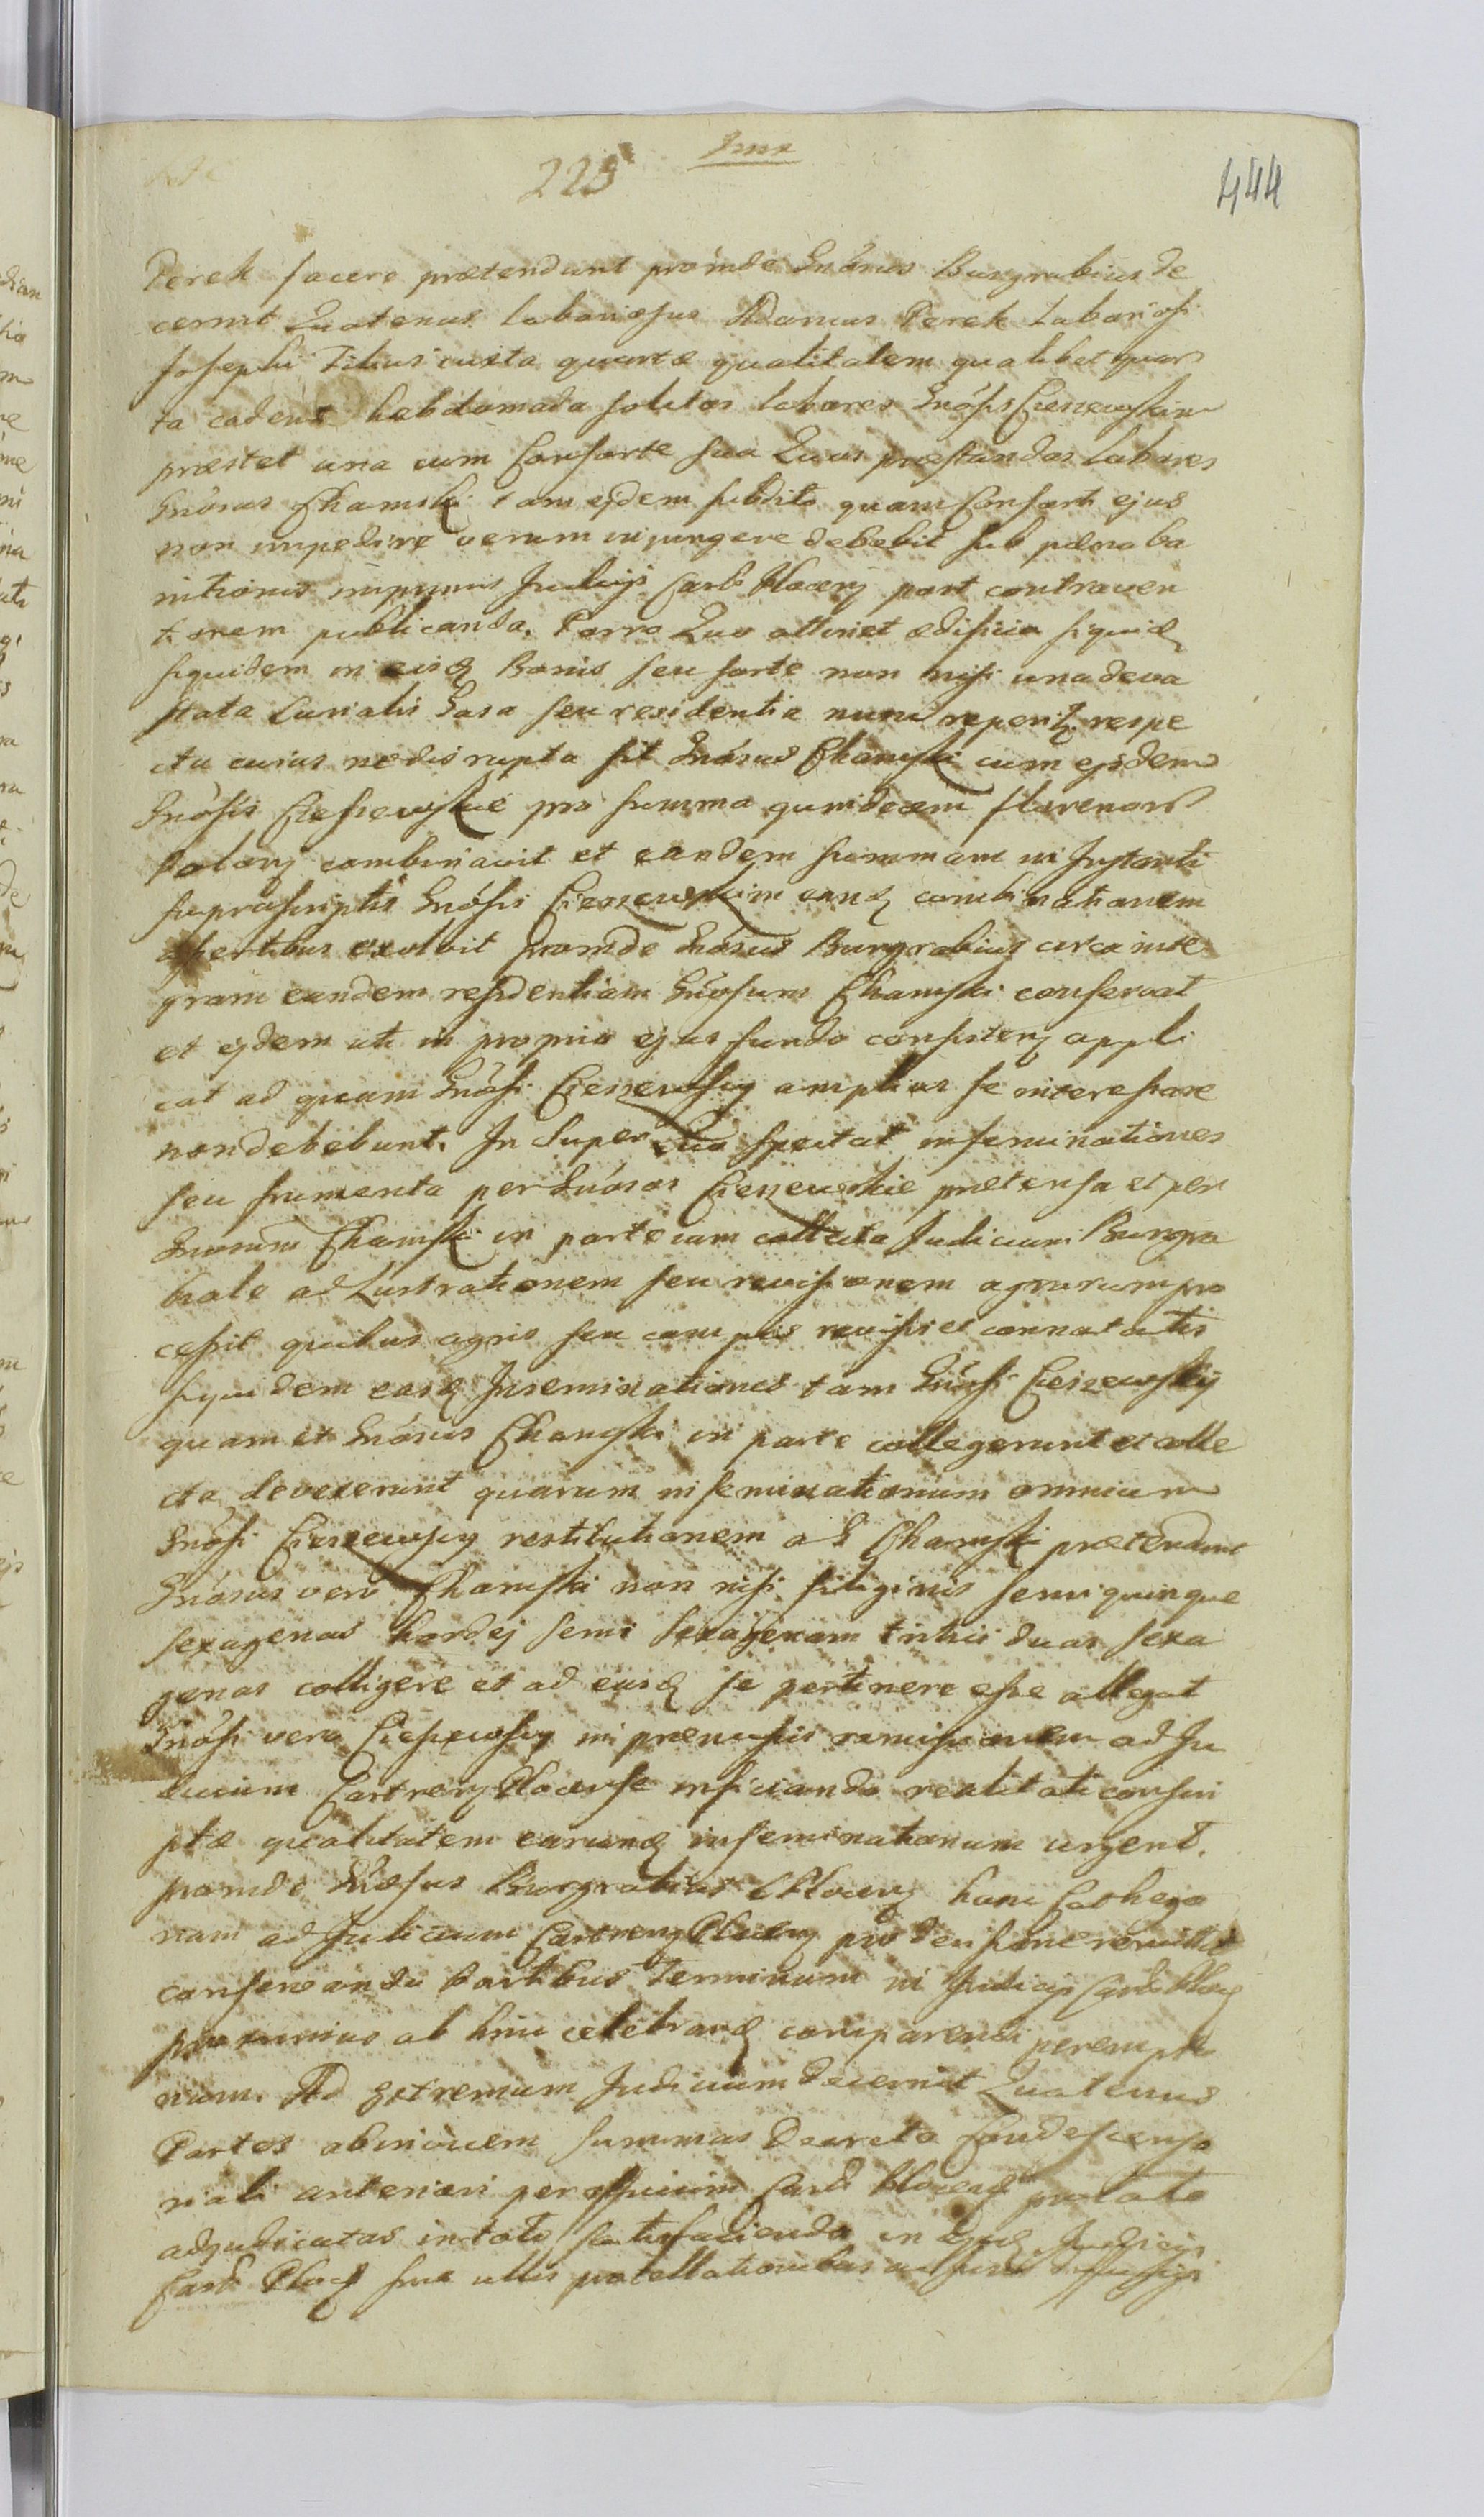 225
444
Perek facere prætendunt proinde Gnosus Burgrabius de
cernit Quatenus laboriosus Adamus Perek Laboriosi
Josephi Filius iuxta quartæ qualitatem qualibet quar
ta cadent hebdomada solitos labores Gnosis Cieszewskim
præstet una cum Consorte sua Quos præstandos labores
Gnosus Chamski tam ejdem subdito quam Consorti ejus
non impedire verum injungere debebit sub pæna ba
nitionis in primis Judicijs Castr Plocen post contraven
tionem publicanda. Porro Quo attinet ædificia siquid
siquidem in eisd Bonis seu sorte non nisi una deva
stata Curialis Casa seu residentia nunc reperit respe
ctu cuius ne disrupta sit Gnosus Chamski cum ejsdem
Gnosis Cieszewskie pro summa quindecem florenor
Polon combinavit et eandem summam in Instanti
supra scriptis Gnosis Cieszewskim eand combinationem
asserentibus exolvit proinde Gnosus Burgrabius circa inte
gram eandem residentiam Gnosum Chamski conservat
et ejdem uti in proprio ejus fundo consisten appli
cat ad quam Gnosi Cieszewscy amplius se interessare
non debebunt. In super Quo spectat inseminationes
seu frumenta per Gnosos Cieszewskie prætensa et per
Gnosum Chamski in parte iam collecta Judicium Burgra
biale ad Lustrationem seu revisionem agrorum pro
cessit quibus agris seu campis revisis et connotatis
siquidem easd Inseminationes tam Gnosi Cieszewsky
quam et Gnosus Chamski in parte collegerunt et colle
cta devexerunt quarum inseminationum omnium
Gnosi Cieszewscy restitutionem a G Chamski prætendunt
Gnosus vero Chamski non nisi siliginis semi quinque
sexagenas hordej semi sexagenam tritici duas sexa
genas colligere et ad eusd se pertinere esse allegat
Gnosi vero Cieszewscy in præmissis remissionem ad Ju
dicium Castren Plocense inficiando realitati conscri
ptæ qualitatem earund inseminationum urgent.
proinde Gnosus Burgrabius Plocen hanc Cathego
riam ad Judicium Castren Plocen pro decisione remittit
conservando Partibus Terminum in Judicijs Castr Ploc
proxinius ab hinc celebrand comparendi perempto
rium. Ad Extremum Judicium decernit Quatenus
Partes abinvicem summas Decreto Condescenso
riali anteriori per officium Castr Plocens prolato
adjudicatas in toto satisfaciendo in ejsd Judicijs
Castr Ploc sine ullis protellationibus